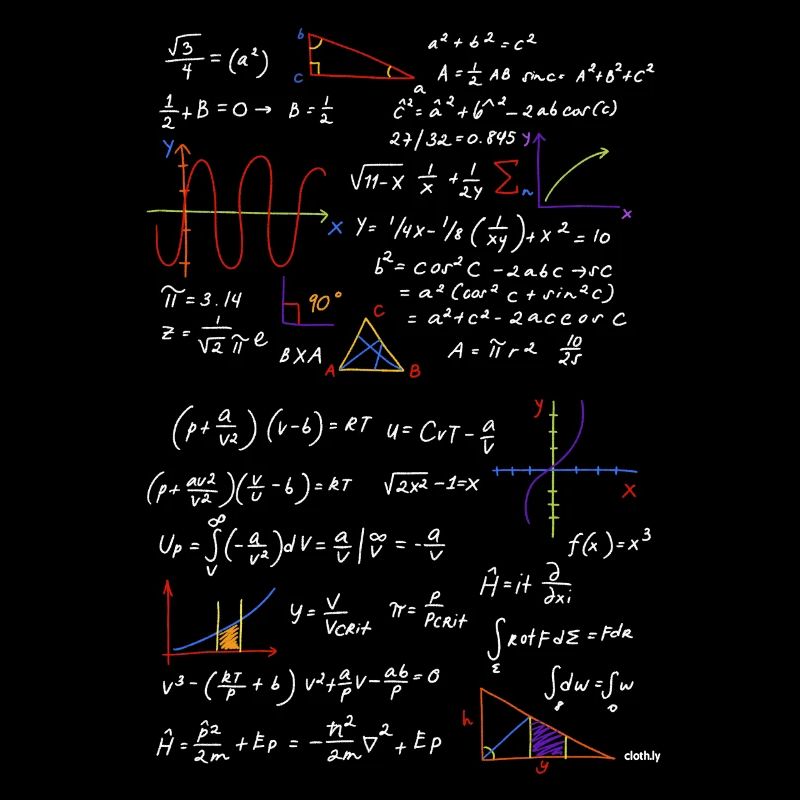 √3/4 = (a²)
b
c
a
a² + b² = c²
A = ½ AB sinc= A²+B²+C²
1/2 + B = 0 → B = 1/2
ĉ² = â² + b^² - 2ab cos(c)
27/32 = 0.845
y
x
Y
X
√11-x 1/x + 1/2y Σ n
Y = 1/4x - 1/8 (1/xy) + x² = 10
b² = cos² C - 2abc → sc
= a² (cos² c + sin² c)
= a² + c² - 2acc os C
π = 3.14
90°
z = 1/√2 π e
B X A
C
A
B
A = π r 2 10/25
(p + a/v²) (v - b) = RT
u = CvT - a/v
y
x
(p + av2/v²)(v/u - b) = RT
√2x² - 1 = x
Up = ∫v∞ (-a/v²)dv = a/v |∞v = -a/v
f(x) = x³
Ĥ = it ∂/∂xi
y = V/VCRit
π = P/PCRit
∫Σ Rot F dΣ = Fdr
v³ - (RT/p + b) v² + a/p v - ab/p = 0
∫8 dw = ∫0 w
h
y
Ĥ = p̂²/2m + Ep = -ħ²/2m ∇² + Ep
cloth.ly